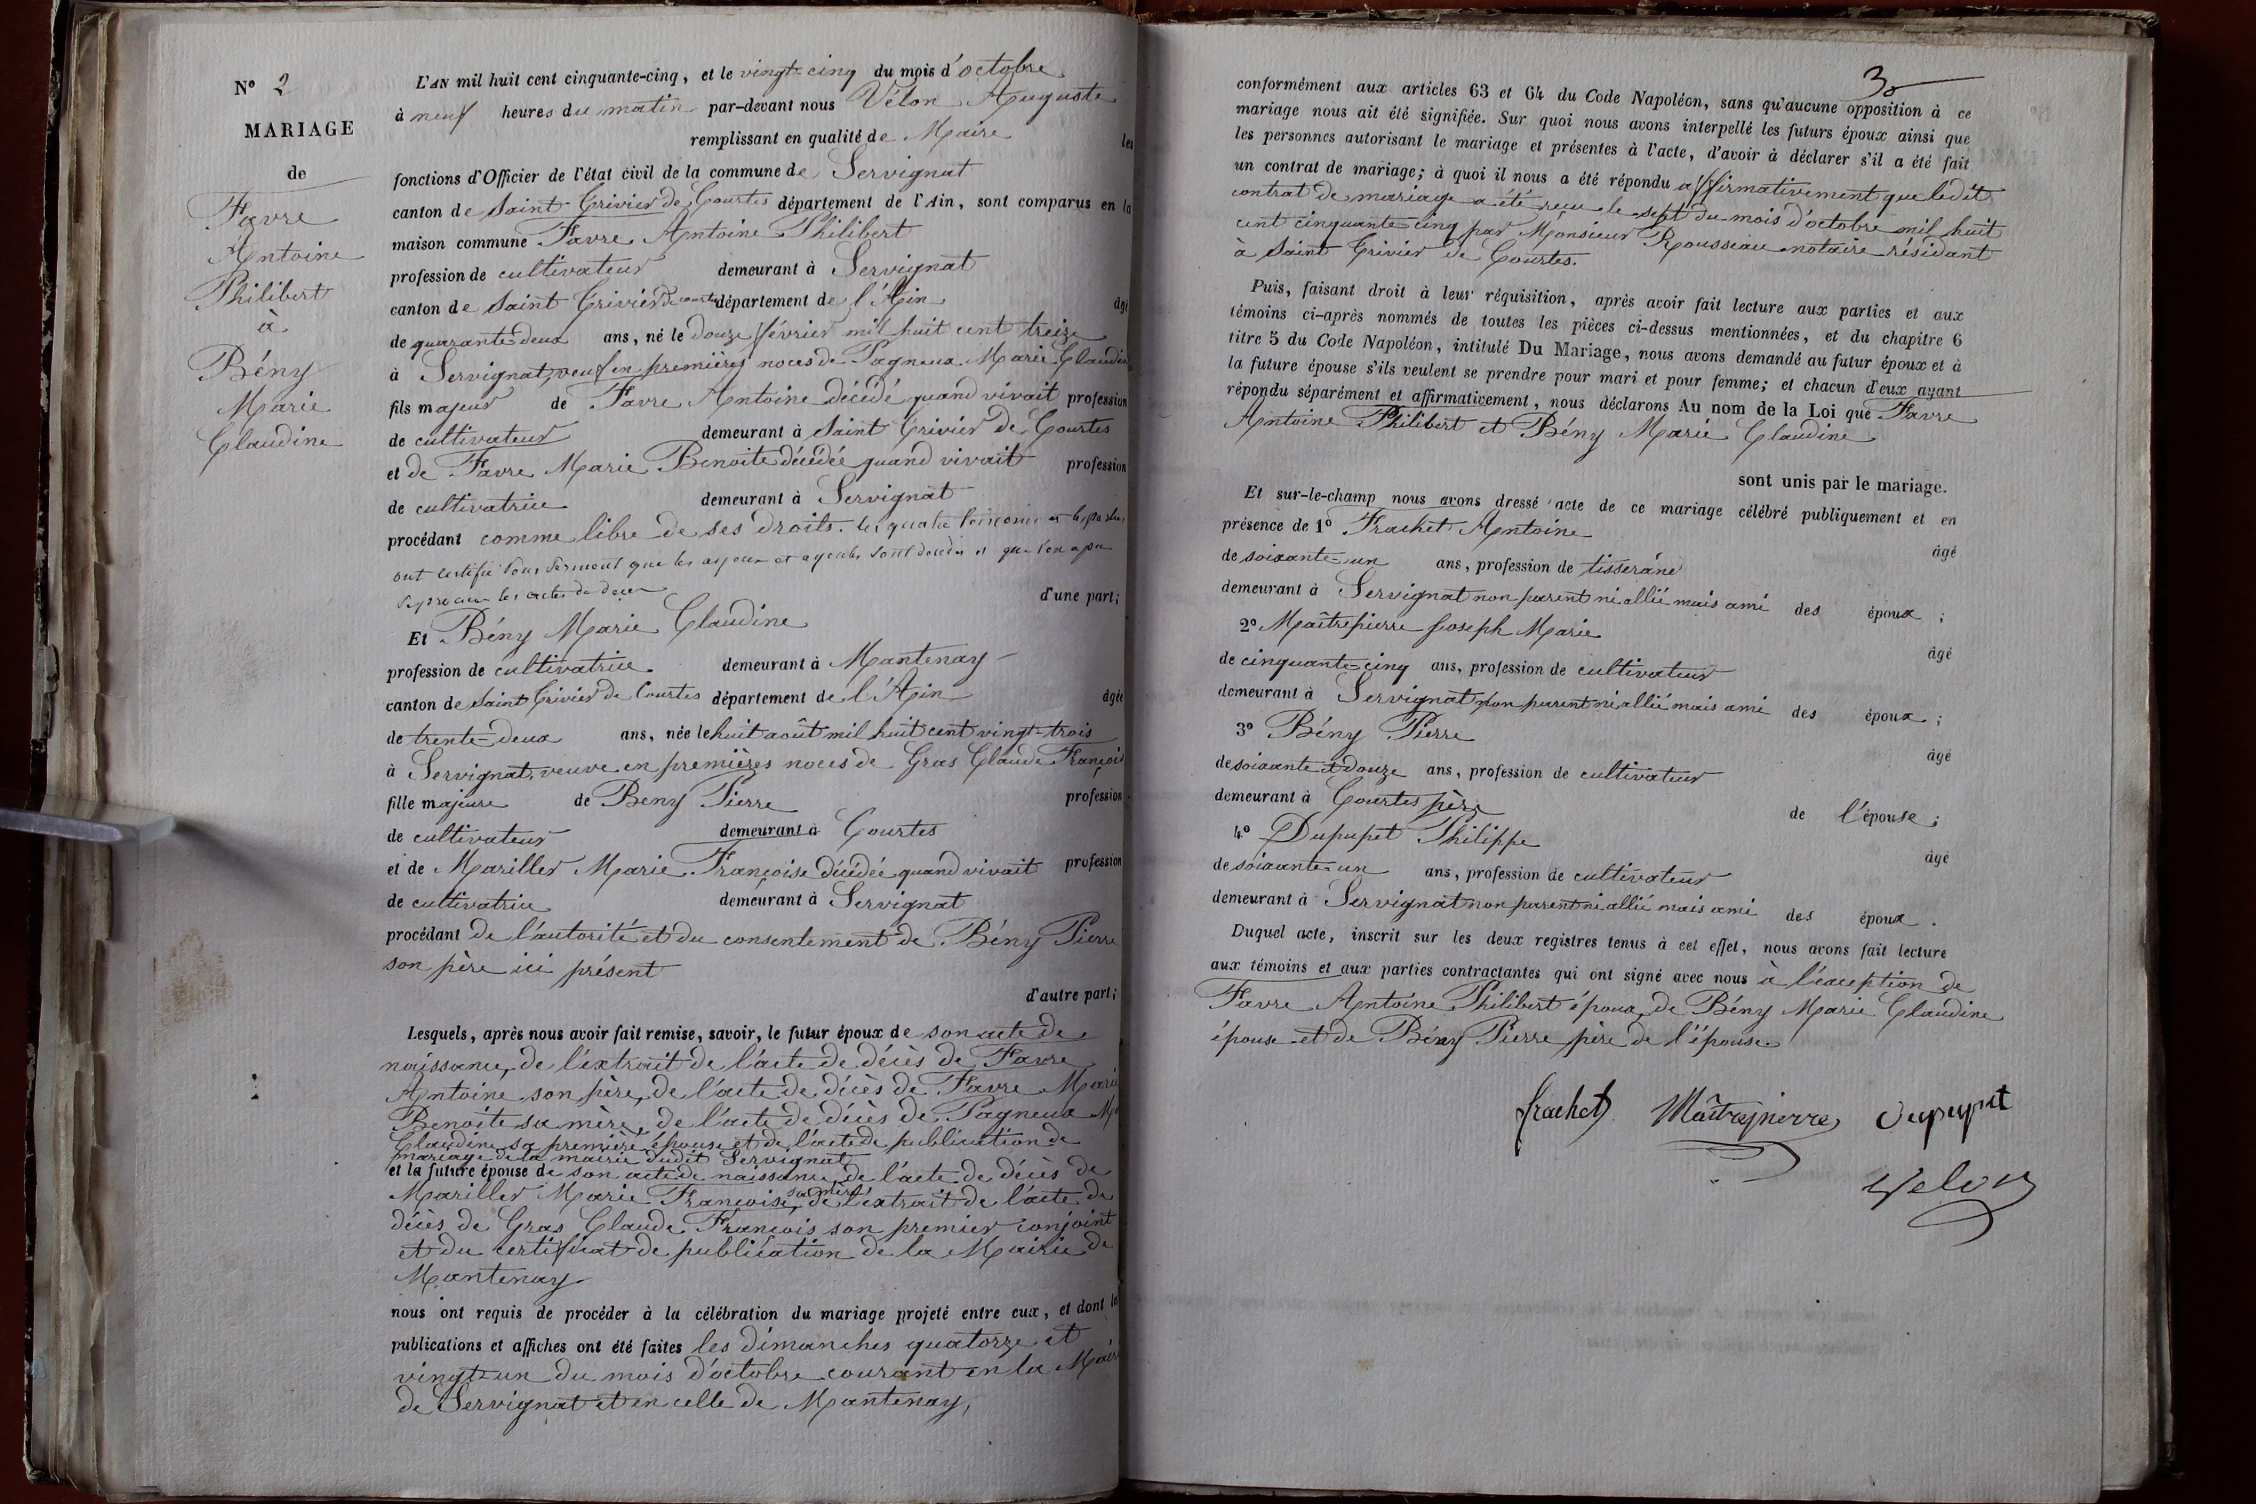 N° 2
MARIAGE
de
Favre
Antoine
Philibert
à
Bény
Marie
Claudine
L'AN mil huit cent cinquante-cinq, et le vingt-cinq du mois d'octobre
à neuf heures du matin par-devant nous Velon Auguste
remplissant en qualité de Maire les
fonctions d'Officier de l'état civil de la commune de Servignat
canton de Saint Trivier de Courtes département de l'Ain, sont comparus en la
maison commune Favre Antoine Philibert
profession de cultivateur demeurant à Servignat
canton de Saint Trivier de Courtes département de l'Ain âgé
de quarante-deux ans, né le douze février mil huit cent treize
à Servignat, veuf en premières noces de Pagneux Marie Claudine
fils majeur de Favre Antoine décédé quand vivait profession
de cultivateur demeurant à Saint Trivier de Courtes
et de Favre Marie Benoite décédée quand vivait profession
de cultivatrice demeurant à Servignat
procédant comme libre de ses droits. les quatre témoins et les parties
ont certifié sous serment que les ayeux et ayeules sont décédés et que l'on a pu
se procurer les actes de décès
d'une part;
Et Bény Marie Claudine
profession de cultivatrice demeurant à Mantenay
canton de Saint Trivier de Courtes département de l'Ain âgée
de trente-deux ans, née le huit août mil huit cent vingt-trois
à Servignat, veuve en premières noces de Gras Claude François
fille majeure de Beny Pierre profession
de cultivateur demeurant à Courtes
et de Mariller Marie Françoise décédée quand vivait profession
de cultivatrice demeurant à Servignat
procédant de l'autorité et du consentement de Bény Pierre
son père ici présent
d'autre part;
Lesquels, après nous avoir fait remise, savoir, le futur époux de son acte de
naissance, de l'extrait de l'acte de décès de Favre
Antoine son père, de l'acte de décès de Favre Marie
Benoite sa mère, de l'acte de décès de Pagneux Mie
Claudine sa première épouse et de l'acte de publication de
mariage de la mairie dudit Servignat
et la future épouse de son acte de naissance, de l'acte de décès de
Mariller Marie Françoise, sa mère de l'extrait de l'acte de
décès de Gras Claude François son premier conjoint
et du certificat de publication de la Mairie de
Mantenay
nous ont requis de procéder à la célébration du mariage projeté entre eux, et dont les
publications et affiches ont été faites les dimanches quatorze et
vingt-un du mois d'octobre courant en la Mairie
de Servignat et en celle de Mantenay,
3
conformément aux articles 63 et 64 du Code Napoléon, sans qu'aucune opposition à ce
mariage nous ait été signifiée. Sur quoi nous avons interpellé les futurs époux ainsi que
les personnes autorisant le mariage et présentes à l'acte, d'avoir à déclarer s'il a été fait
un contrat de mariage; à quoi il nous a été répondu affirmativement que ledit
contrat de mariage a été reçu le sept du mois d'octobre mil huit
cent cinquante-cinq par Monsieur Rousseau notaire résidant
à Saint Trivier de Courtes.
Puis, faisant droit à leur réquisition, après avoir fait lecture aux parties et aux
témoins ci-après nommés de toutes les pièces ci-dessus mentionnées, et du chapitre 6
titre 5 du Code Napoléon, intitulé Du Mariage, nous avons demandé au futur époux et à
la future épouse s'ils veulent se prendre pour mari et pour femme; et chacun d'eux ayant
répondu séparément et affirmativement, nous déclarons Au nom de la Loi que Favre
Antoine Philibert et Bény Marie Claudine
sont unis par le mariage.
Et sur-le-champ nous avons dressé acte de ce mariage célébré publiquement et en
présence de 1° Frachet Antoine
âgé
de soixante-un ans, profession de tisserand
demeurant à Servignat non parent ni allié mais ami des époux ;
2° Maîtrepierre Joseph Marie
âgé
de cinquante-cinq ans, profession de cultivateur
demeurant à Servignat non parent ni allié mais ami des époux ;
3° Bény Pierre
âgé
de soixante et douze ans, profession de cultivateur
demeurant à Courtes père de l'épouse ;
4° Dupupet Philippe
âgé
de soixante-un ans, profession de cultivateur
demeurant à Servignat non parent ni allié mais ami des époux .
Duquel acte, inscrit sur les deux registres tenus à cet effet, nous avons fait lecture
aux témoins et aux parties contractantes qui ont signé avec nous à l'exception de
Favre Antoine Philibert époux, de Bény Marie Claudine
épouse et de Bény Pierre père de l'épouse
frachet Maîtrepierre Dupupet
Velon